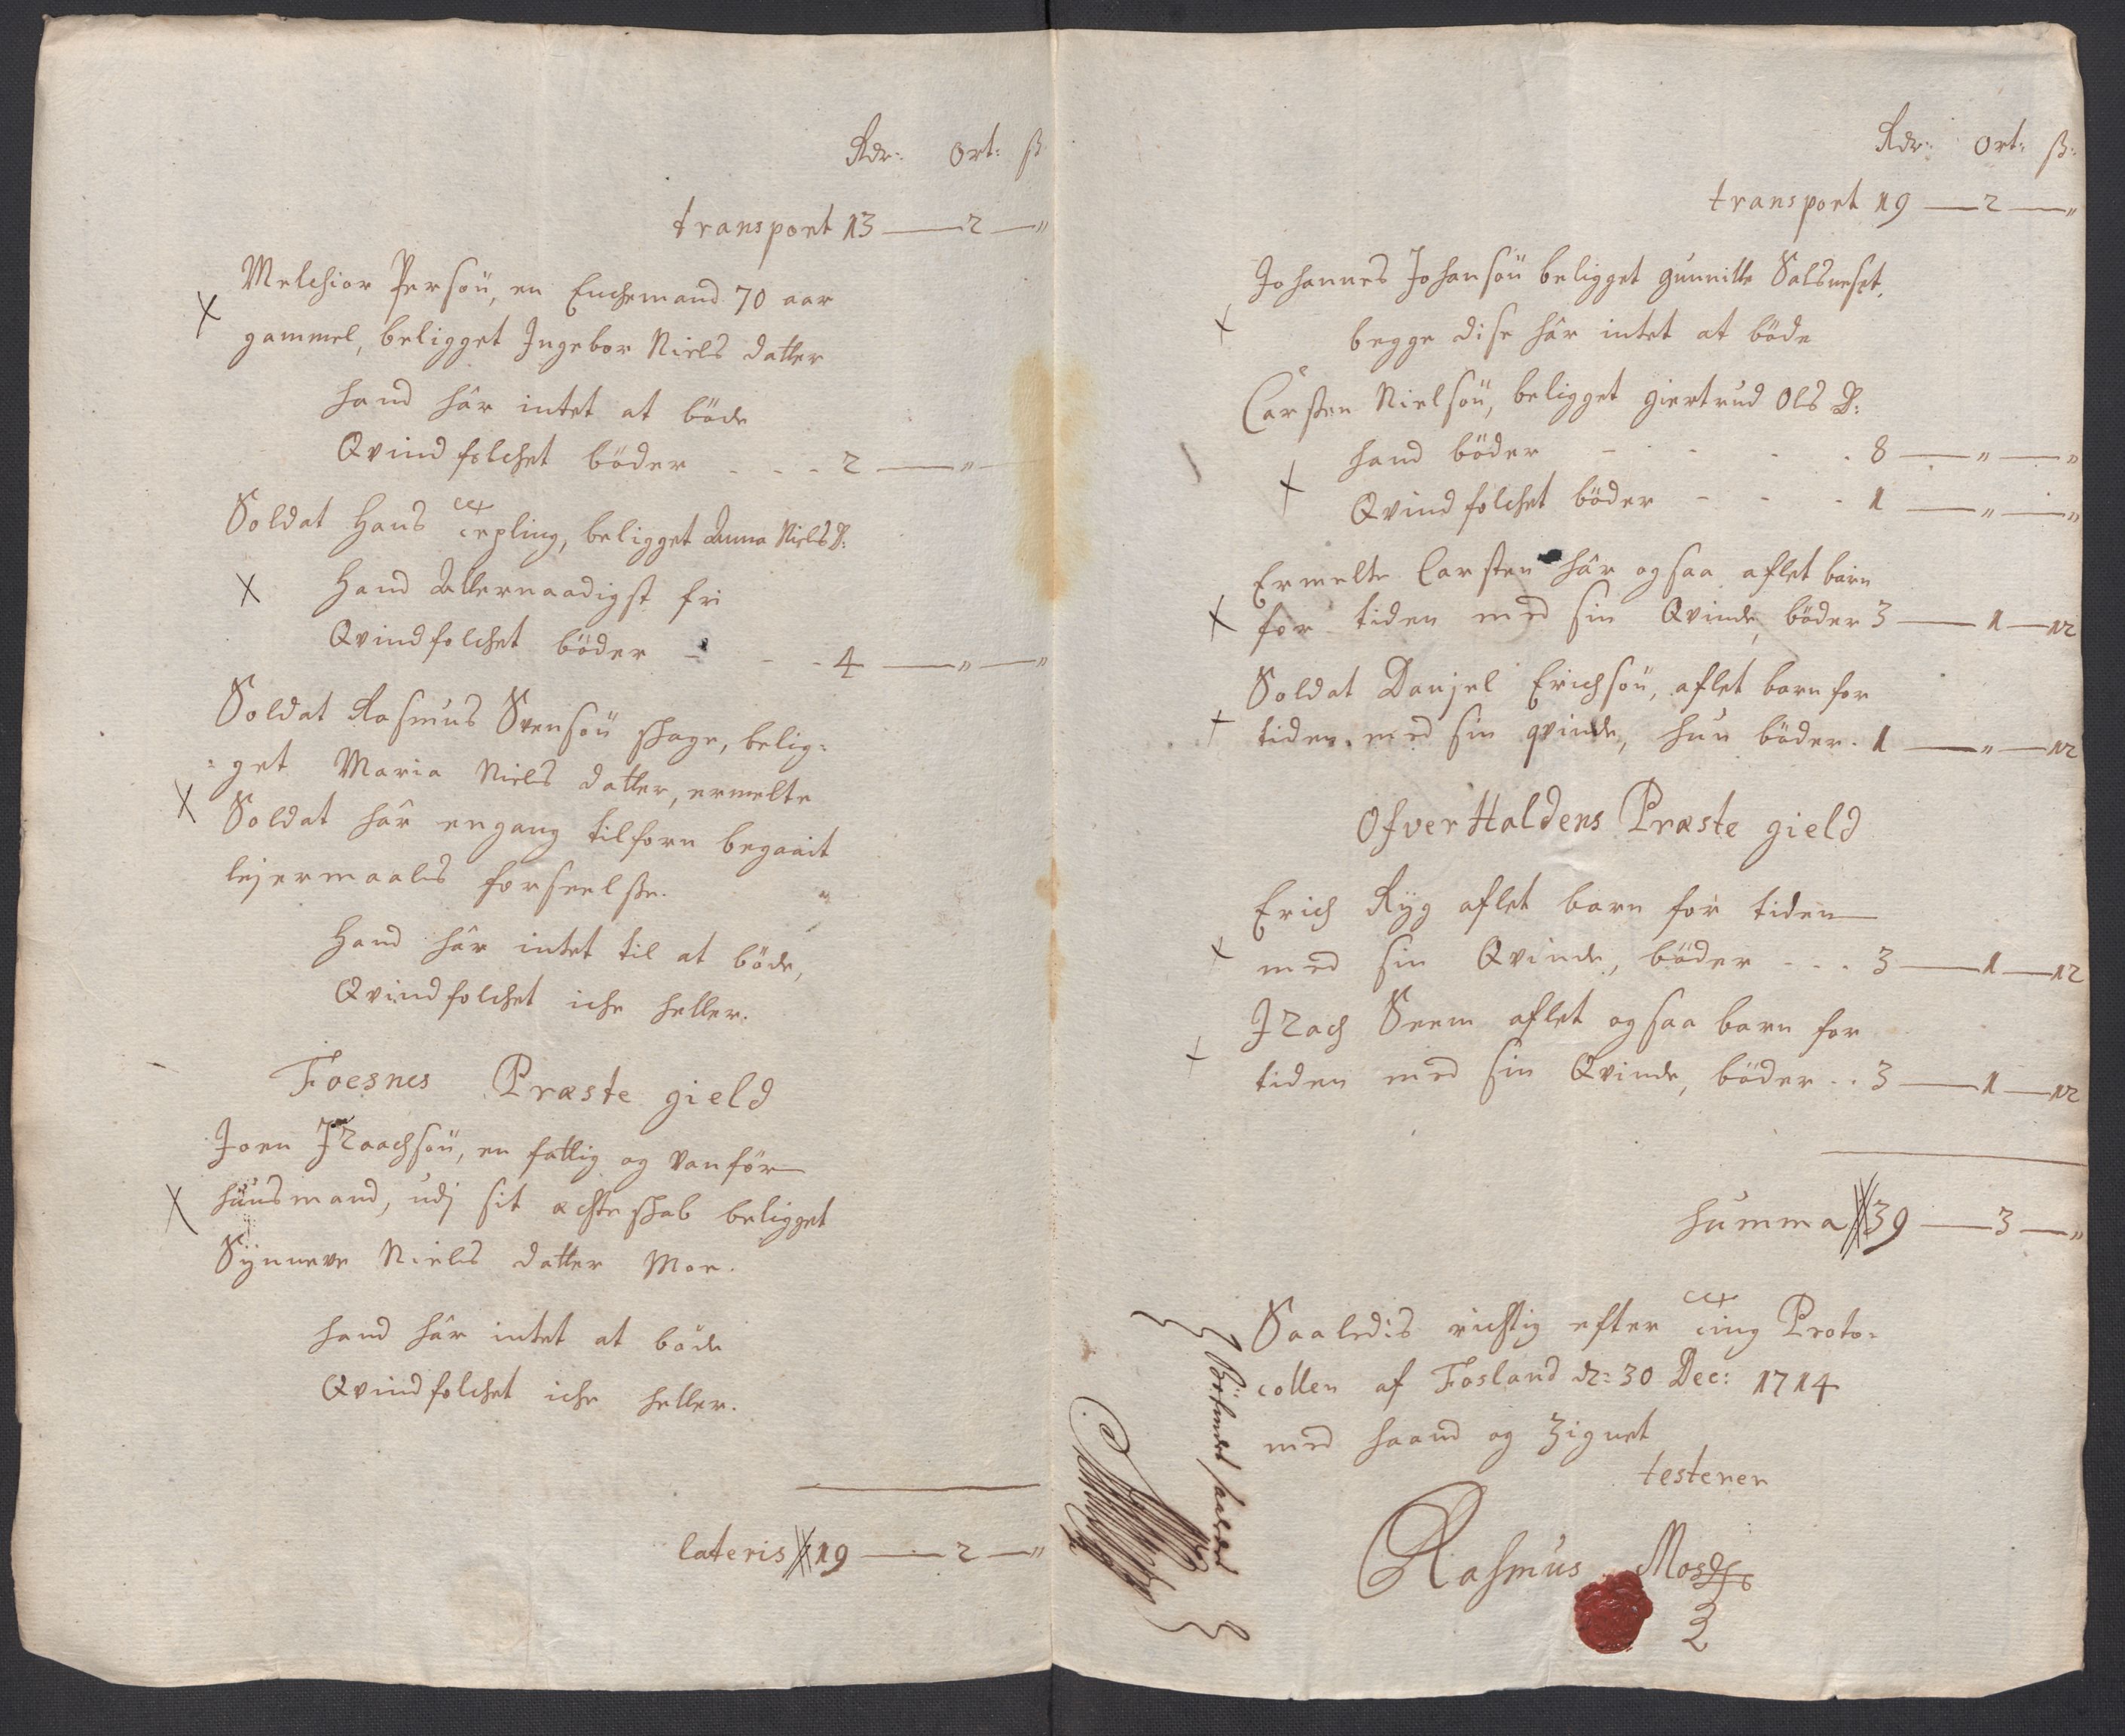 Rdr: Ort: ß
transport 13 — 2 — "
Melchior Persøn, en Enchemand 70 aar
gammel, beligget Ingebor Niels datter
hand hâr intet at böde
Qvindfolchet böder - - - 2 — " —
Soldat Hans Tepling, beligget Anna Niels D:
Hand Allernaadigst fri
Qvindfolchet böder - - - 4 — " — "
Soldat Rasmus Svensøn Schage, belig=
=get Maria Niels datter, ermelte
Soldat hâr engang tilforn begaait
lejermaals forseelsse.
Hand hâr intet til at böde,
Qvindfolchet iche heller.
Foesnes Præste gield
Joen Izaachsøn, en fattig og vanför
huusmand, udj sit æchteschab beligget
Synneve Niels datter Moe.
hand hâr intet at böde
Qvindfolchet iche heller.
lateris 19 — 2 — "
Rdr: Ort: ß:
transport 19 — 2 — "
Johannes Johansøn beligget Gunnille Salsneset,
begge dise hâr intet at böde
Carsten Nielsøn, beligget Giertrud Ols D:
hand böder - - - - 8 — " — "
Qvindfolchet böder - - - 1 — " — "
Ermelte Carsten hâr ogsaa aflet barn
for tiden med sin Qvinde, böder 3 — 1 — 12
Soldat Danjel Erichsøn, aflet barn for
tiden med sin qvinde, hun böder. 1 — " — 12
OfverHaldens Præste gield
Erich Ryg aflet barn for tiden
med sin Qvinde, böder - - - 3 — 1 — 12
Izach Seem aflet ogsaa barn for
tiden med sin Qvinde, böder . . 3 — 1 — 12
Summa 39 — 3 — "
Saaledis richtig efter Ting Proto=
collen af Fosland d: 30 Dec: 1714
med haand og Zignet
testerer
Rasmus